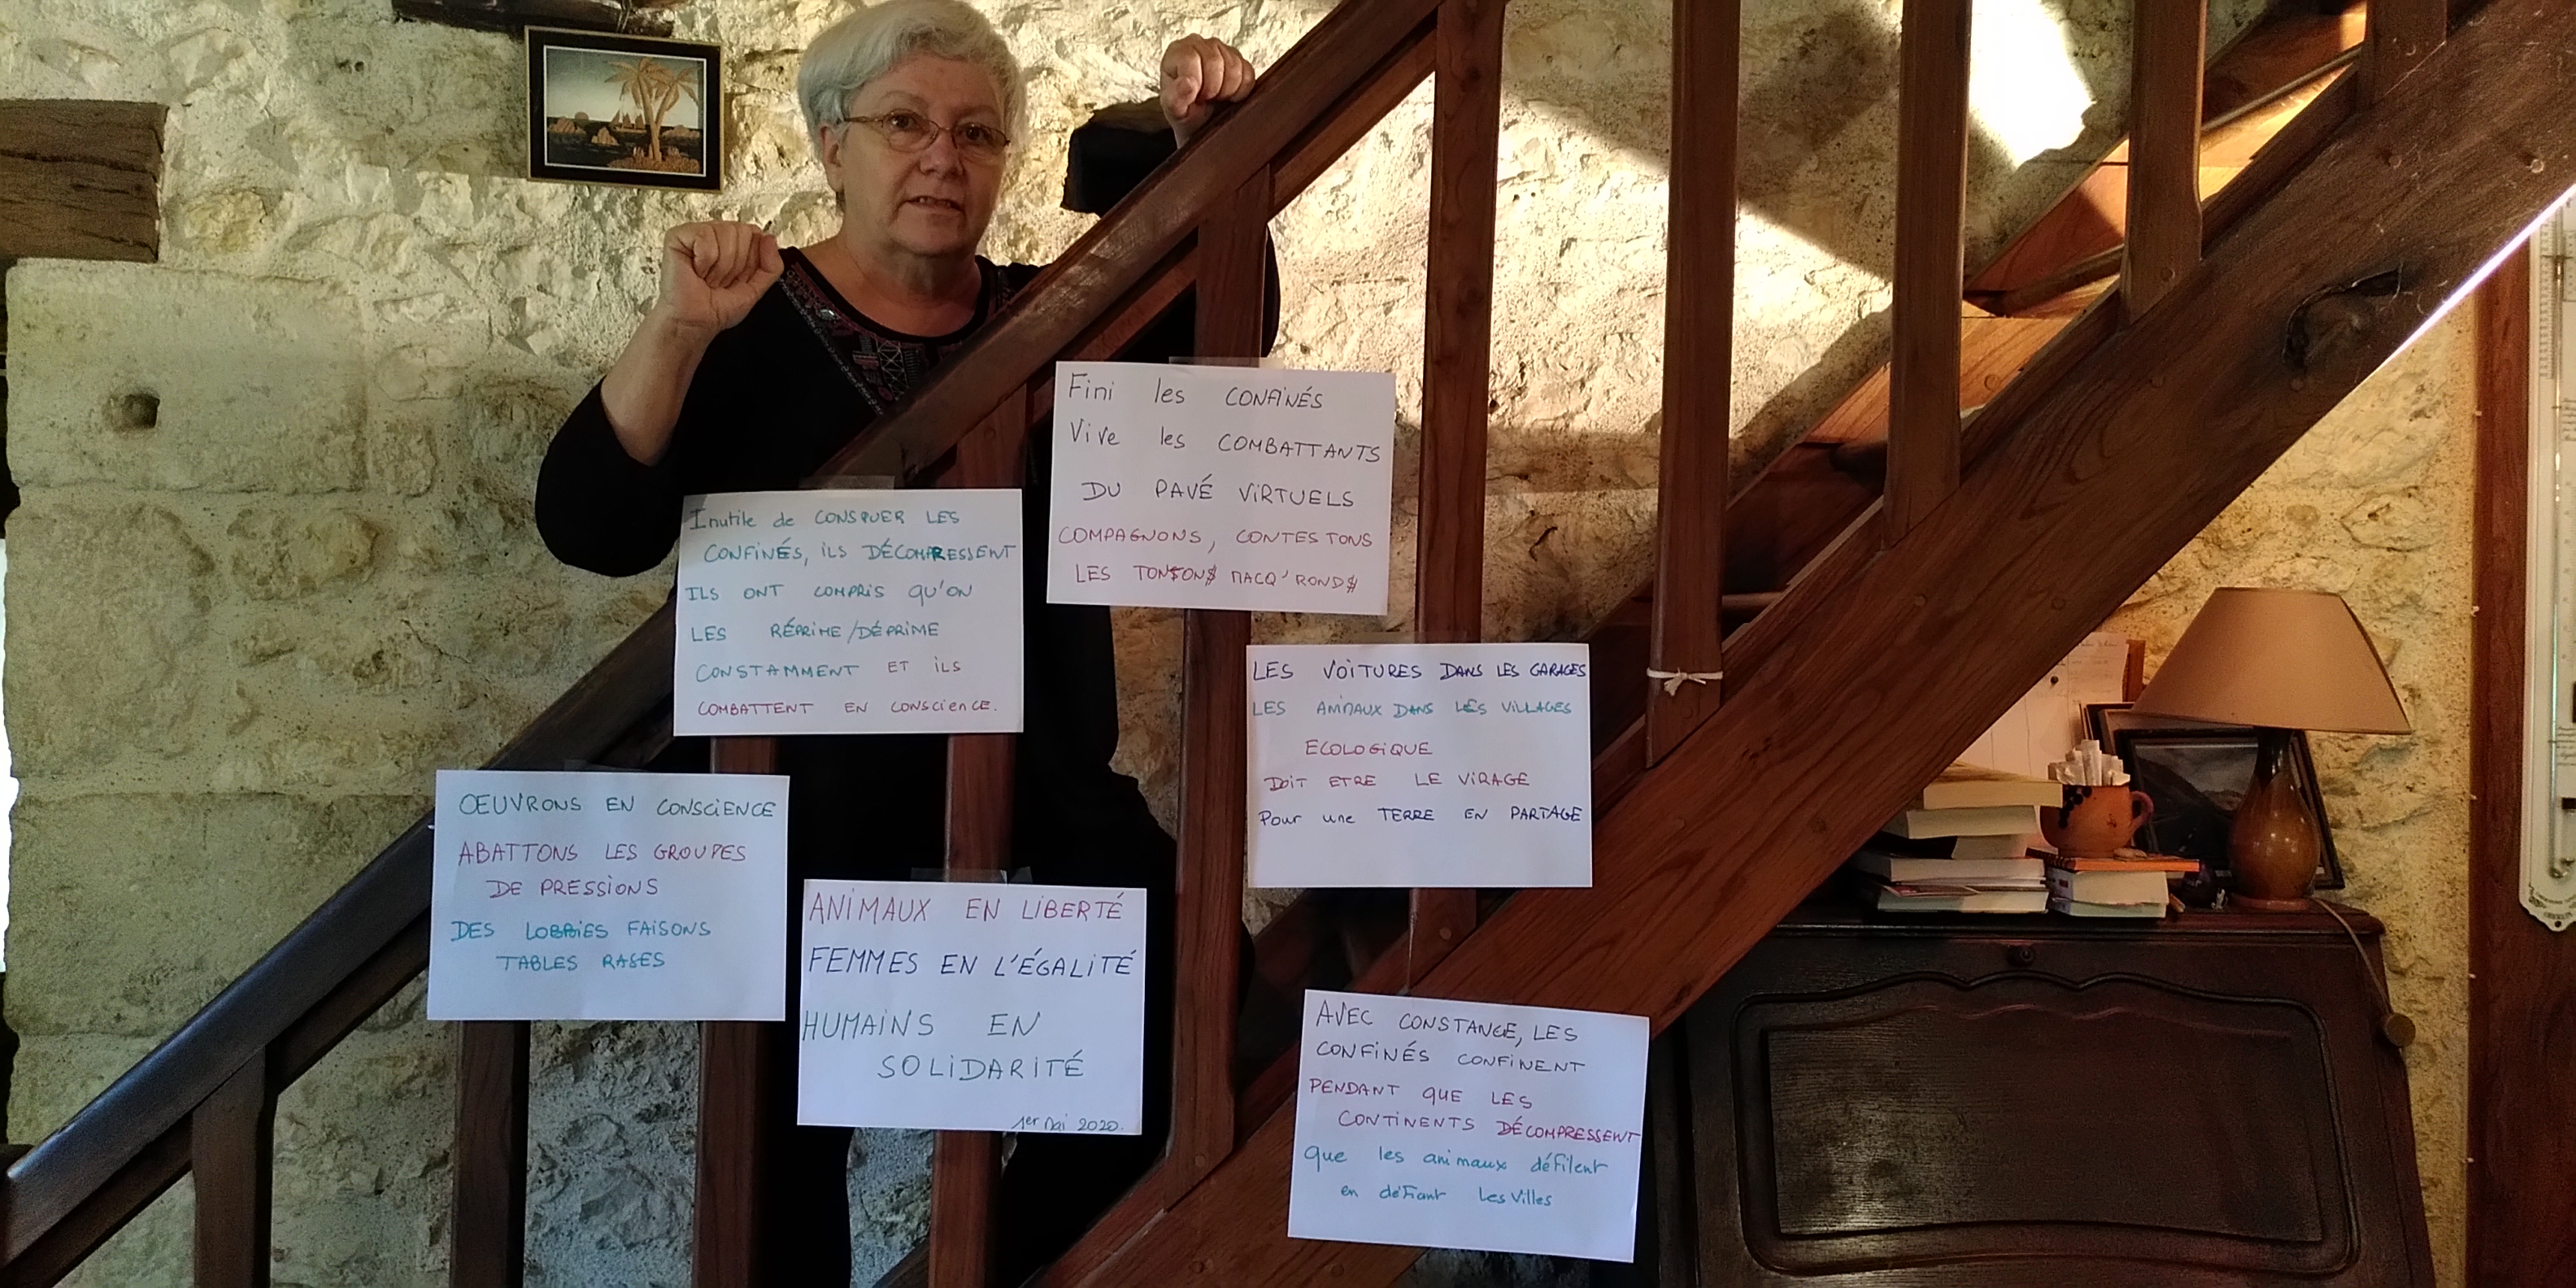 Fini les CONFINÉS
Vive les COMBATTANTS
DU PAVÉ VIRTUELS
COMPAGNONS, CONTESTONS
LES TON$ON$ MACQ'ROND$
Inutile de CONSPUER LES
CONFINÉS, ILS DÉCOMPRESSENT
ILS ONT COMPRIS QU'ON
LES RÉPRIME/DÉPRIME
CONSTAMMENT ET ILS
COMBATTENT EN CONSCIENCE.
LES VOITURES DANS LES GARAGES
LES ANIMAUX DANS LES VILLAGES
ECOLOGIQUE
DOIT ETRE LE VIRAGE
Pour une TERRE EN PARTAGE
OEUVRONS EN CONSCIENCE
ABATTONS LES GROUPES
DE PRESSIONS
DES LOBBIES FAISONS
TABLES RASES
ANIMAUX EN LIBERTÉ
FEMMES EN L'ÉGALITÉ
HUMAINS EN
SOLIDARITÉ
1er Mai 2020.
AVEC CONSTANCE, LES
CONFINÉS CONFINENT
PENDANT QUE LES
CONTINENTS DÉCOMPRESSENT
que les animaux défilent
en défiant les villes